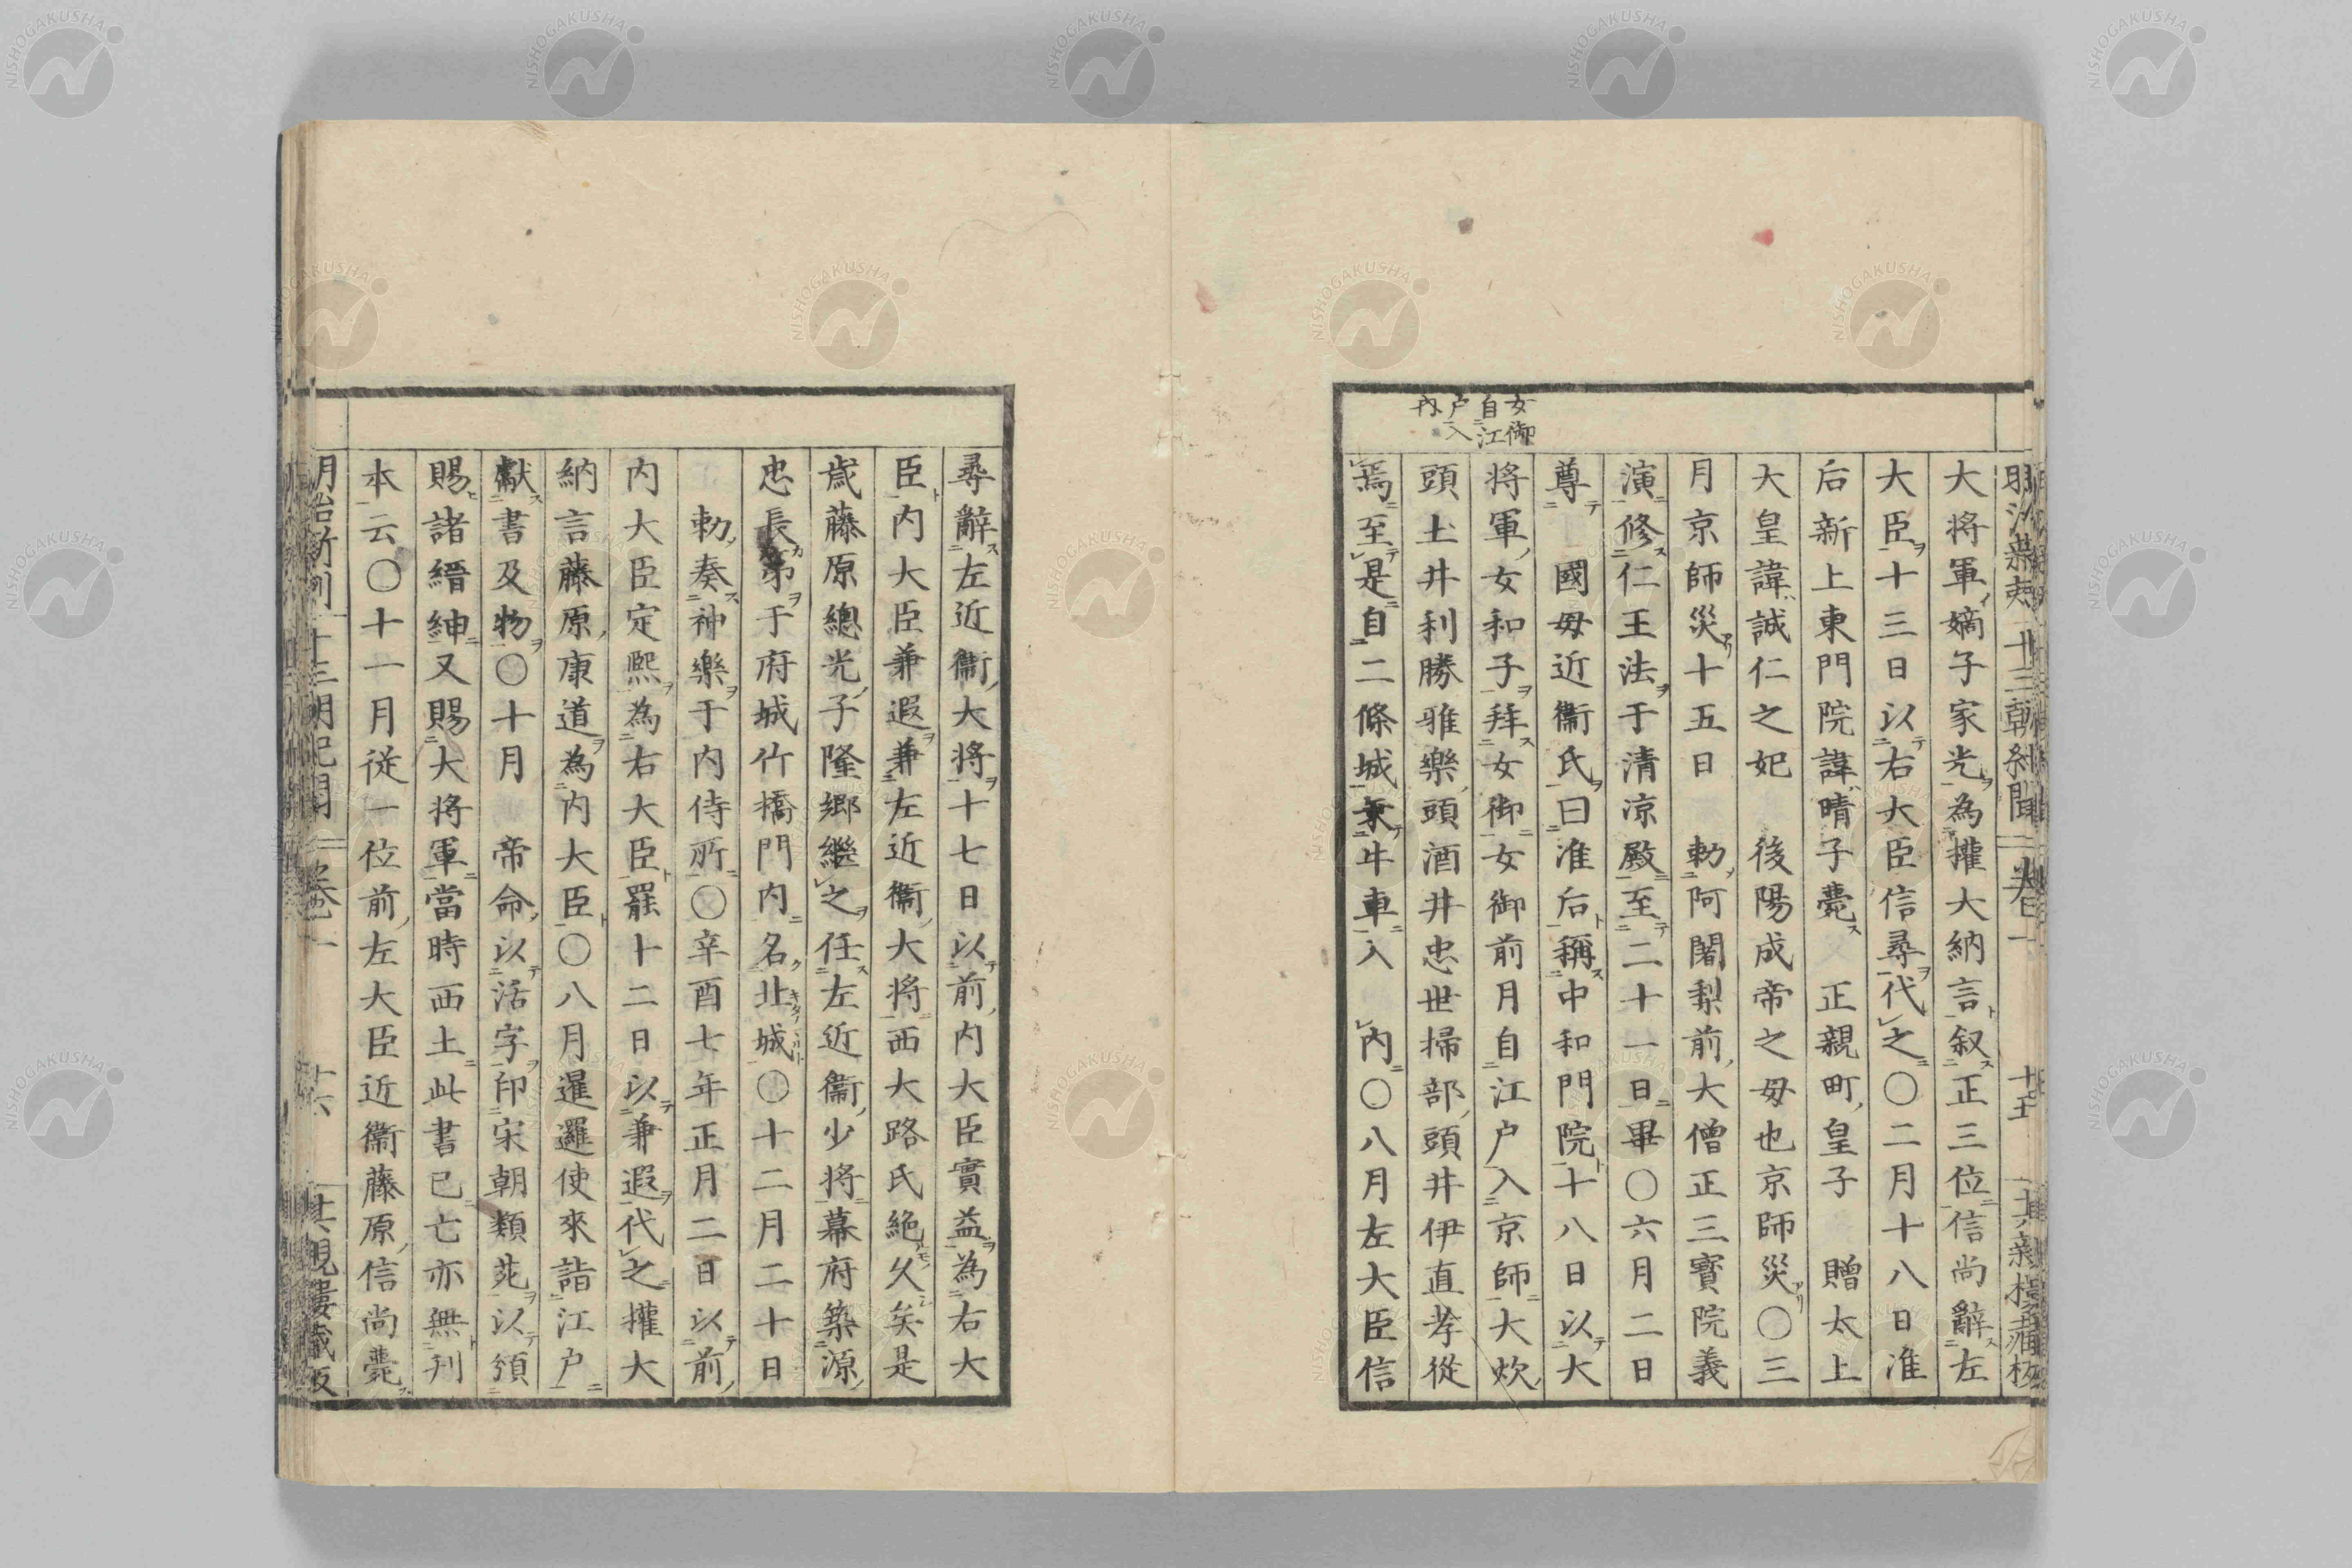 大将軍嫡子家光為權大納言叙正三位信尚辭左
大臣十三日以右大臣信尋代之〇二月十八日准
后新上東門院諱晴子薨　正親町皇子　贈太上
大皇諱誠仁之妃　後陽成帝之母也京師災〇三
月京師災十五日　勅阿闍梨前大僧正三寳院義
演修仁王法于清凉殿至二十一日畢〇六月二日
尊　國母近衞氏曰准后稱中和門院十八日以大
将軍女和子拜女御女御前月自江戸入京師大炊
頭土井利勝雅樂頭酒井忠世掃部頭井伊直孝從
焉至是自二條城乗牛車入　内〇八月左大臣信
女御
自江
戸入
内
尋辭左近衞大将十七日以前内大臣實益為右大
臣内大臣兼遐兼左近衞大将西大路氏絶久矣是
歳藤原總光子隆郷繼之任左近衞少将幕府築源
忠長第于府城竹橋門内名北城〇十二月二十日
勅奏神樂于内侍所〇辛酉七年正月二日以前
内大臣定熙為右大臣罷十二日以兼遐代之權大
納言藤原康道為内大臣〇八月暹邏使來詣江戸
獻書及物〇十月　帝命以活字印宋朝類苑以頒
賜諸縉紳又賜大将軍當時西土此書已亡亦無刊
本云〇十一月従一位前左大臣近衞藤原信尚薨
十三朝紀聞　卷一　十六